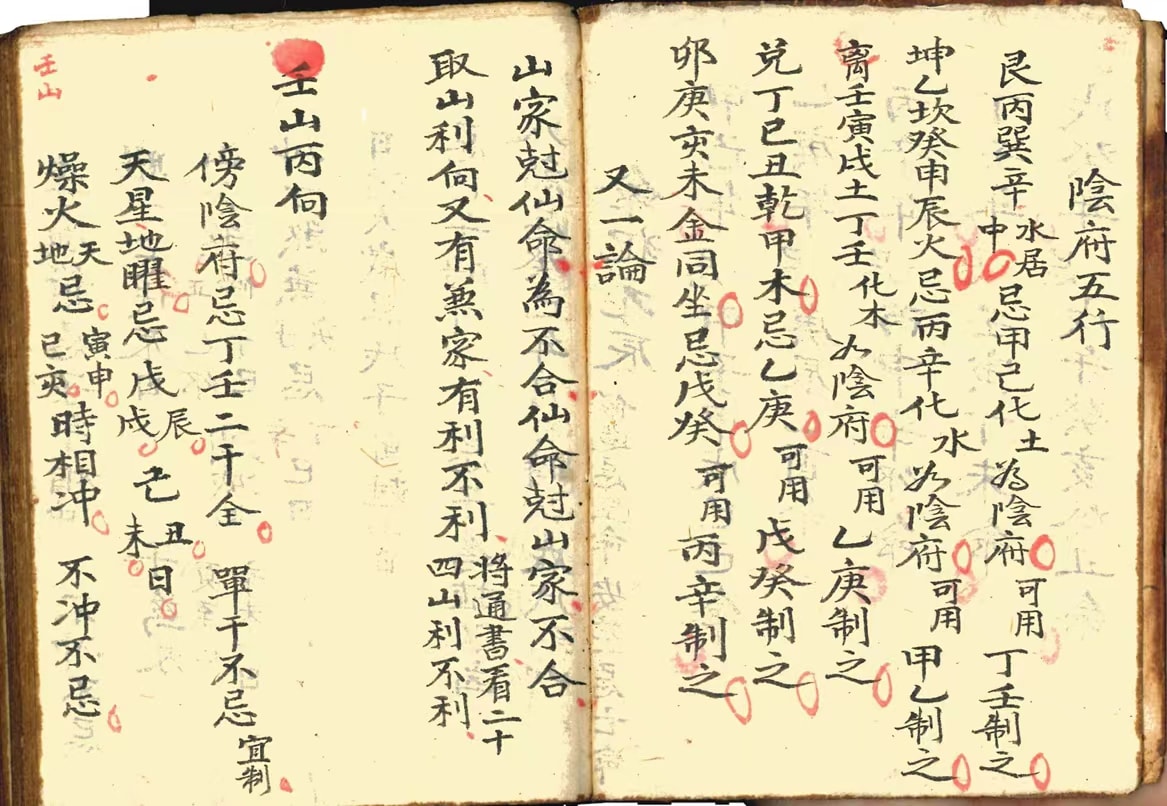 陰府五行
艮丙巽辛水居中忌甲己化土為陰府可用丁壬制之
坤乙坎癸申辰火忌丙辛化水為陰府可用甲乙制之
离壬寅戌土丁壬化木為陰府可用乙庚制之
兌丁巳丑乾甲木忌乙庚可用戊癸制之
卯庚亥未金同坐忌戊癸可用丙辛制之
又一論
山家尅仙命為不合仙命尅山家不合
取山利向又有兼家有利不利將通書看二十四山利不利
壬山丙向
傍陰府忌丁壬二干全單干不忌宜制
天星地曜忌戊辰戌己丑未日
燥火天地忌寅申巳亥時相冲不冲不忌
壬山